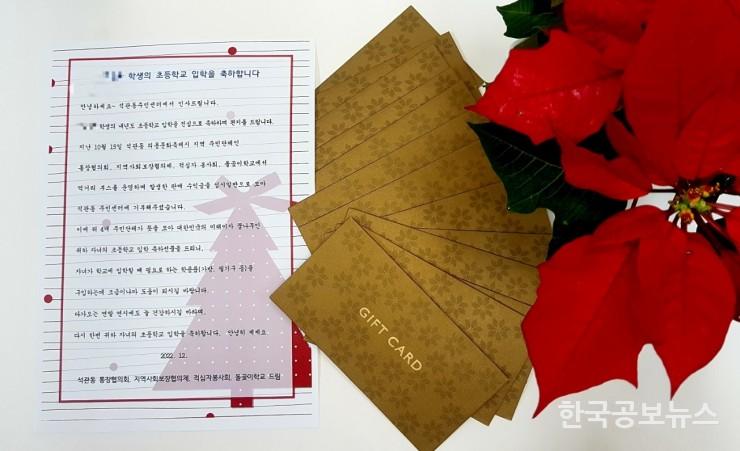 학생의 초등학교 입학을 축하합니다
안녕하세요~ 석관동주민센터에서 인사드립니다.
학생의 내년도 초등학교 입학을 진심으로 축하하며 편지를 드립니다.
지난 10월 15일 석관동 의릉문화축제시 지역 주민단체인
통장협의회, 지역사회보장협의체, 적십자 봉사회, 돌곶이학교에서
먹거리 부스를 운영하며 발생한 판매 수익금을 십시일반으로 모아
석관동 주민센터에 기부해주셨습니다.
이에 위 4개 주민단체가 뜻을 모아 대한민국의 미래이자 꿈나무인
귀하 자녀의 초등학교 입학 축하선물을 드리니,
자녀가 학교에 입학할 때 필요로 하는 학용품(가방, 필기구 등)을
구입하는데 조금이나마 도움이 되시길 바랍니다.
다가오는 연말 연시에도 늘 건강하시길 바라며,
다시 한번 귀하 자녀의 초등학교 입학을 축하합니다. 안녕히 계세요.
2022. 12.
석관동 통장협의회, 지역사회보장협의체, 적십자봉사회, 돌곶이학교 드림
GIFT CARD
한국공보뉴스